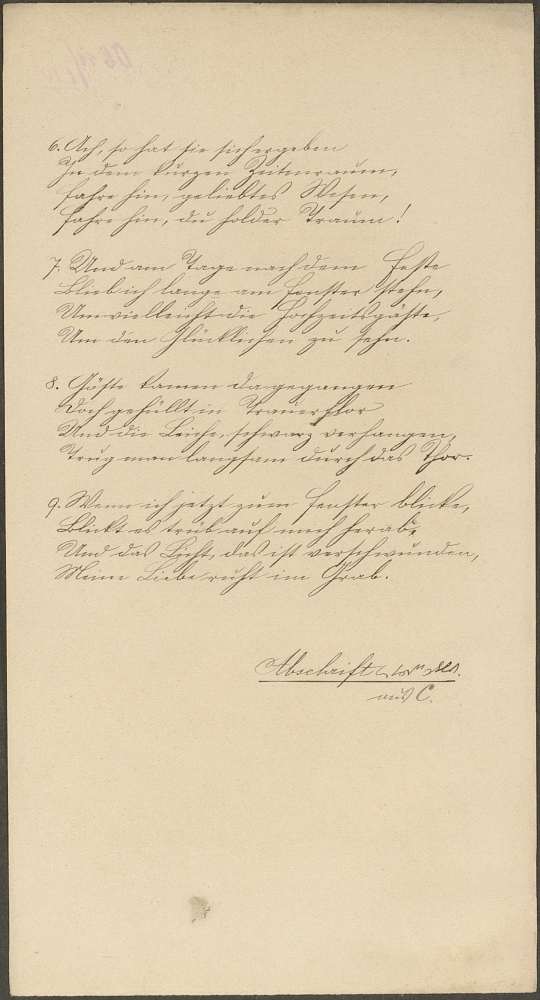 6. Ach, so hat sie sich ergeben
In dem kurzen Zeitenraum,
fahre hin, geliebtes Wesen,
fahre hin, du holder Traum!
7. Und am Tage nach dem Feste
Blieb ich lange am Fenster stehn,
Um vielleicht die Hochzeitsgäste,
Um den Glücklichen zu sehn.
8. Gäste kamen dagegangen
Doch gehüllt in Trauerflor
Und die Leiche, schwarz verhangen,
Trug man langsam durch das Thor.
9. Wenn ich jetzt zum Fenster blicke,
Blickt es trüb auf mich herab,
Und das Licht, das ist verschwunden,
Meine Liebe ruht im Grab.
Abschrift
aus C.